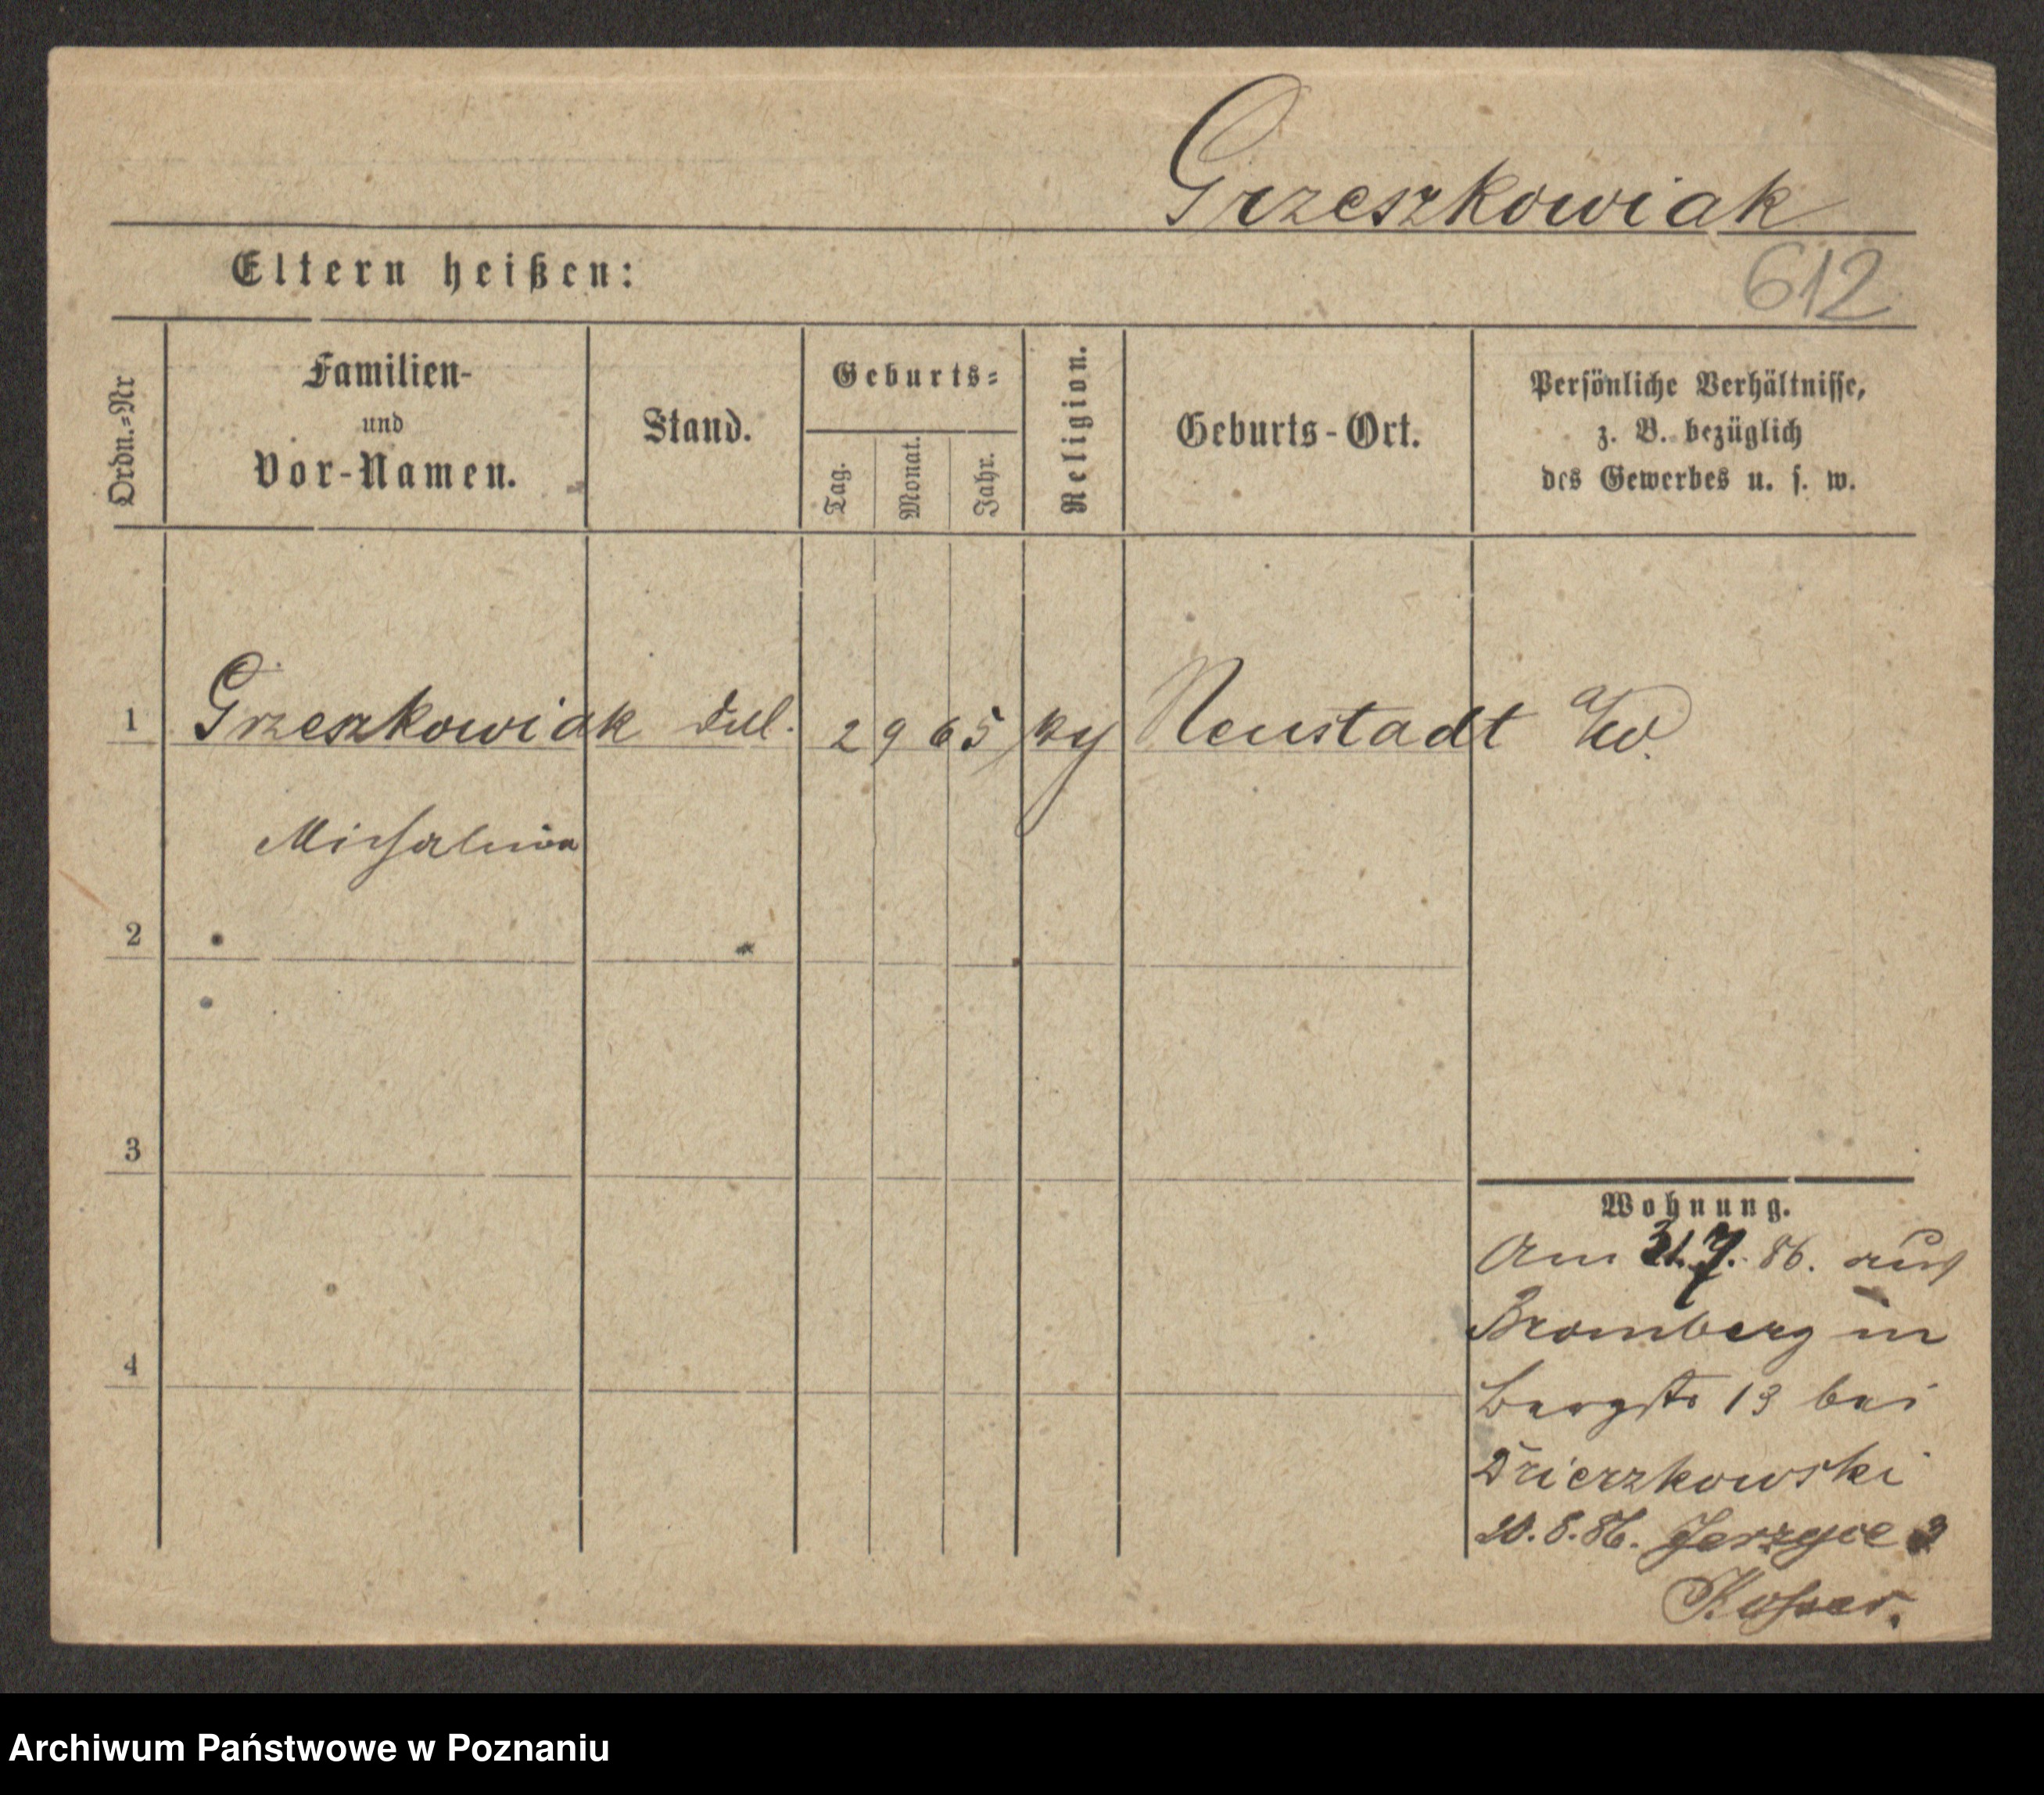 Grzeszkowiak
612
Eltern heißen:
Ordn.-Nr
Familien-
und
Vor-Namen.
Stand.
Geburts-
Tag.
Monat.
Jahr.
Religion.
Geburts-Ort.
Persönliche Verhältnisse,
z. B. bezüglich
des Gewerbes u. s. w.
1 Grzeszkowiak 2 9 65 Neustadt a/W.
Michalina
2
3
4
Wohnung.
Am 31.7. 86. aus
Bromberg in
Bergstr 13 bei
Dzierzkowski
20.8.86. Jerzyce
Archiwum Państwowe w Poznaniu